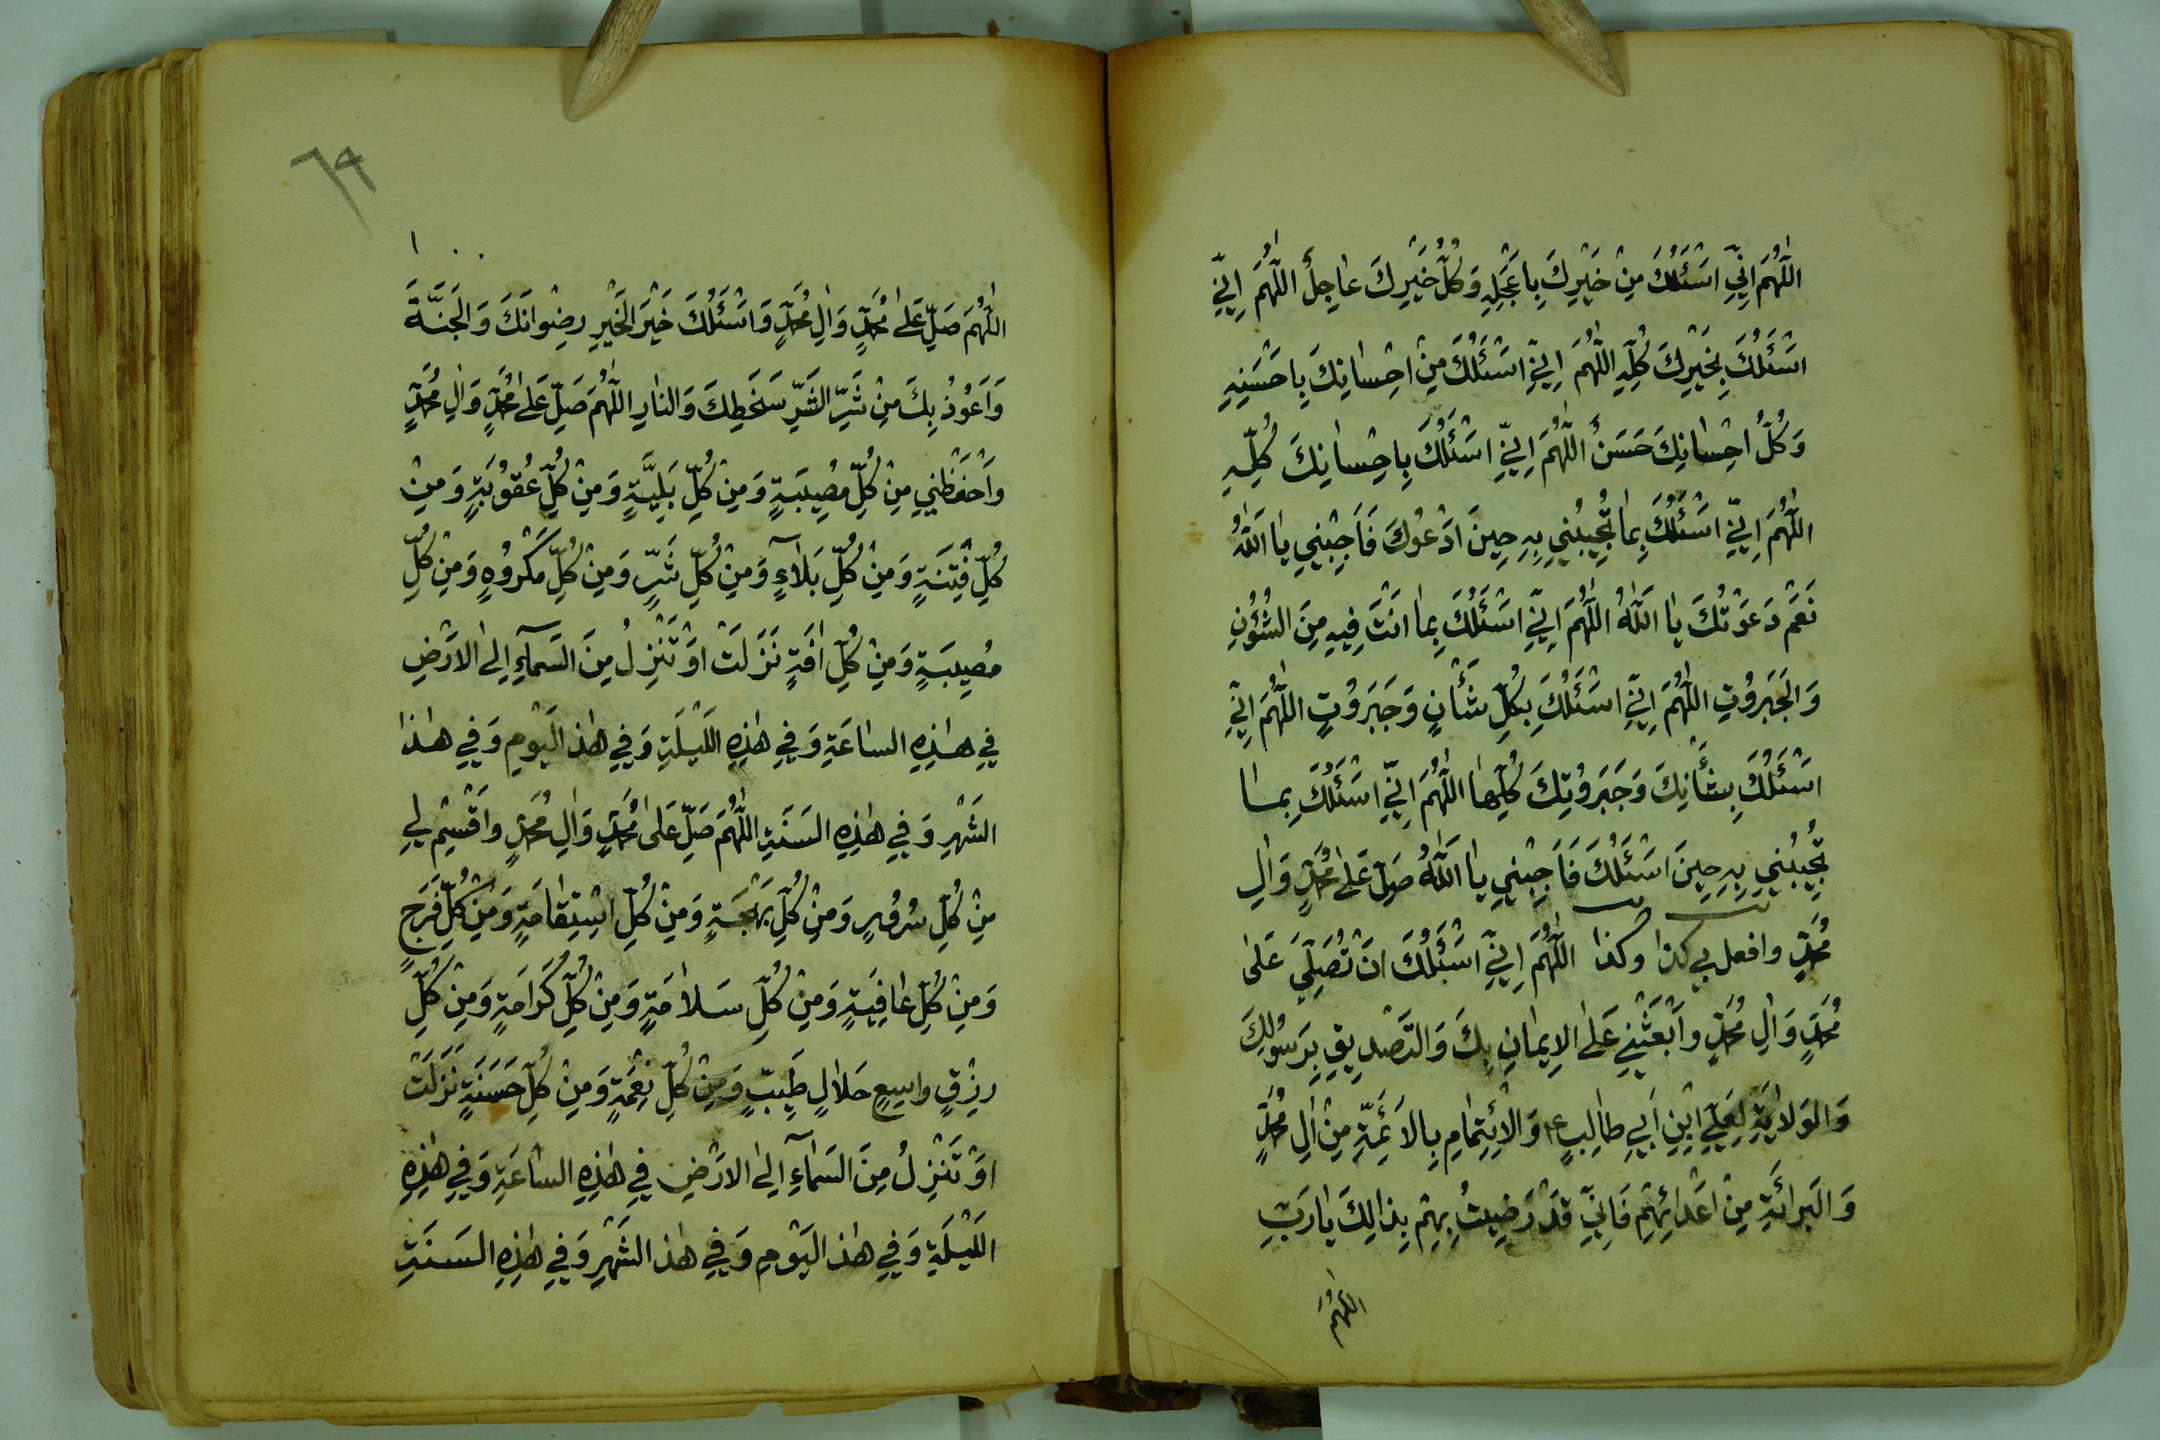 اَللّٰهُمَّ اِنِّي اَسْئَلُكَ مِنْ خَيْرِكَ بِاَعْجَلِهِ وَكُلُّ خَيْرِكَ عاجِلٌ اَللّٰهُمَّ اِنِّي
اَسْئَلُكَ بِخَيْرِكَ كُلِّهِ اَللّٰهُمَّ اِنِّي اَسْئَلُكَ مِنْ اِحْسانِكَ بِاَحْسَنِهِ
وَكُلُّ اِحْسانِكَ حَسَنٌ اَللّٰهُمَّ اِنِّي اَسْئَلُكَ بِاِحْسانِكَ كُلِّهِ
اَللّٰهُمَّ اِنِّي اَسْئَلُكَ بِما تُجِيبُنِي بِهِ حِينَ اَدْعُوكَ فَاَجِبْنِي يا اَللّٰهُ
نَعَمْ دَعَوْتُكَ يا اَللّٰهُ اَللّٰهُمَّ اِنِّي اَسْئَلُكَ بِما اَنْتَ فِيهِ مِنَ الشُّؤُنِ
وَالْجَبَرُوتِ اَللّٰهُمَّ اِنِّي اَسْئَلُكَ بِكُلِّ شَأْنٍ وَجَبَرُوتٍ اَللّٰهُمَّ اِنِّي
اَسْئَلُكَ بِشَأْنِكَ وَجَبَرُوتِكَ كُلِّها اَللّٰهُمَّ اِنِّي اَسْئَلُكَ بِما
تُجِيبُنِي بِهِ حِينَ اَسْئَلُكَ فَاَجِبْنِي يا اَللّٰهُ صَلِّ عَلىٰ مُحَمَّدٍ وَاٰلِ
مُحَمَّدٍ وافعل بي كذا وكذا اَللّٰهُمَّ اِنِّي اَسْئَلُكَ اَنْ تُصَلِّيَ عَلىٰ
مُحَمَّدٍ وَاٰلِ مُحَمَّدٍ وَابْعَثْنِي عَلَى الْاِيمانِ بِكَ وَالتَّصْدِيقِ بِرَسُولِكَ
وَالْوَلايَةِ لِعَلِيِّ ابْنِ اَبِي طالِبٍ ع وَالْاِئْتِمامِ بِالْاَئِمَّةِ مِنْ اٰلِ مُحَمَّدٍ
وَالْبَرائَةِ مِنْ اَعْدائِهِمْ فَاِنِّي قَدْ رَضِيتُ بِهِمْ بِذالِكَ يا رَبِّ
اَللّٰهُمَّ
٦٩
اَللّٰهُمَّ صَلِّ عَلىٰ مُحَمَّدٍ وَاٰلِ مُحَمَّدٍ وَاَسْئَلُكَ خَيْرَ الْخَيْرِ رِضْوانَكَ وَالْجَنَّةَ
وَاَعُوذُ بِكَ مِنْ شَرِّ الشَّرِّ سَخَطِكَ وَالنّارِ اَللّٰهُمَّ صَلِّ عَلىٰ مُحَمَّدٍ وَاٰلِ مُحَمَّدٍ
وَاحْفَظْنِي مِنْ كُلِّ مُصِيبَةٍ وَمِنْ كُلِّ بَلِيَّةٍ وَمِنْ كُلِّ عُقُوبَةٍ وَمِنْ
كُلِّ فِتْنَةٍ وَمِنْ كُلِّ بَلاءٍ وَمِنْ كُلِّ شَرٍّ وَمِنْ كُلِّ مَكْرُوهٍ وَمِنْ كُلِّ
مُصِيبَةٍ وَمِنْ كُلِّ اٰفَةٍ نَزَلَتْ اَوْ تَنْزِلُ مِنَ السَّماءِ اِلَى الْاَرْضِ
فِي هٰذِهِ السّاعَةِ وَفِي هٰذِهِ اللَّيْلَةِ وَفِي هٰذَا الْيَوْمِ وَفِي هٰذَا
الشَّهْرِ وَفِي هٰذِهِ السَّنَةِ اَللّٰهُمَّ صَلِّ عَلىٰ مُحَمَّدٍ وَاٰلِ مُحَمَّدٍ وَاقْسِمْ لِي
مِنْ كُلِّ سُرُورٍ وَمِنْ كُلِّ بَهْجَةٍ وَمِنْ كُلِّ اسْتِقامَةٍ وَمِنْ كُلِّ فَرَجٍ
وَمِنْ كُلِّ عافِيَةٍ وَمِنْ كُلِّ سَلامَةٍ وَمِنْ كُلِّ كَرامَةٍ وَمِنْ كُلِّ
رِزْقٍ واسِعٍ حَلالٍ طَيِّبٍ وَمِنْ كُلِّ نِعْمَةٍ وَمِنْ كُلِّ حَسَنَةٍ نَزَلَتْ
اَوْ تَنْزِلُ مِنَ السَّماءِ اِلَى الْاَرْضِ فِي هٰذِهِ السّاعَةِ وَفِي هٰذِهِ
اللَّيْلَةِ وَفِي هٰذَا الْيَوْمِ وَفِي هٰذَا الشَّهْرِ وَفِي هٰذِهِ السَّنَةِ